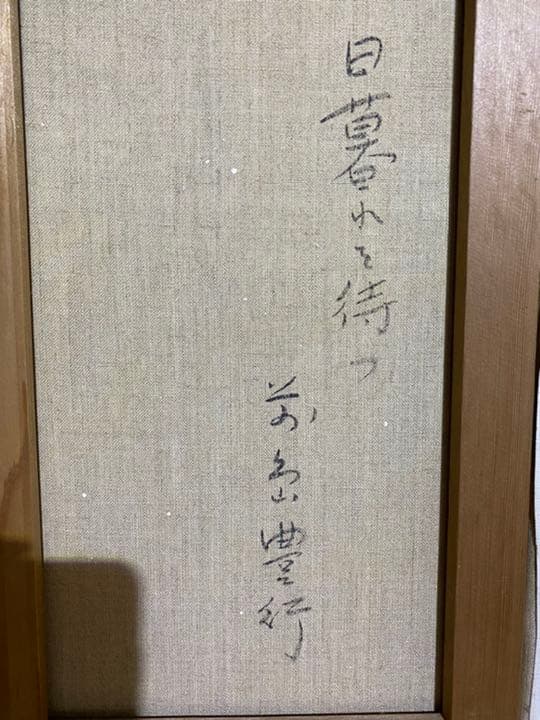 日暮れを待つ
前島豊行